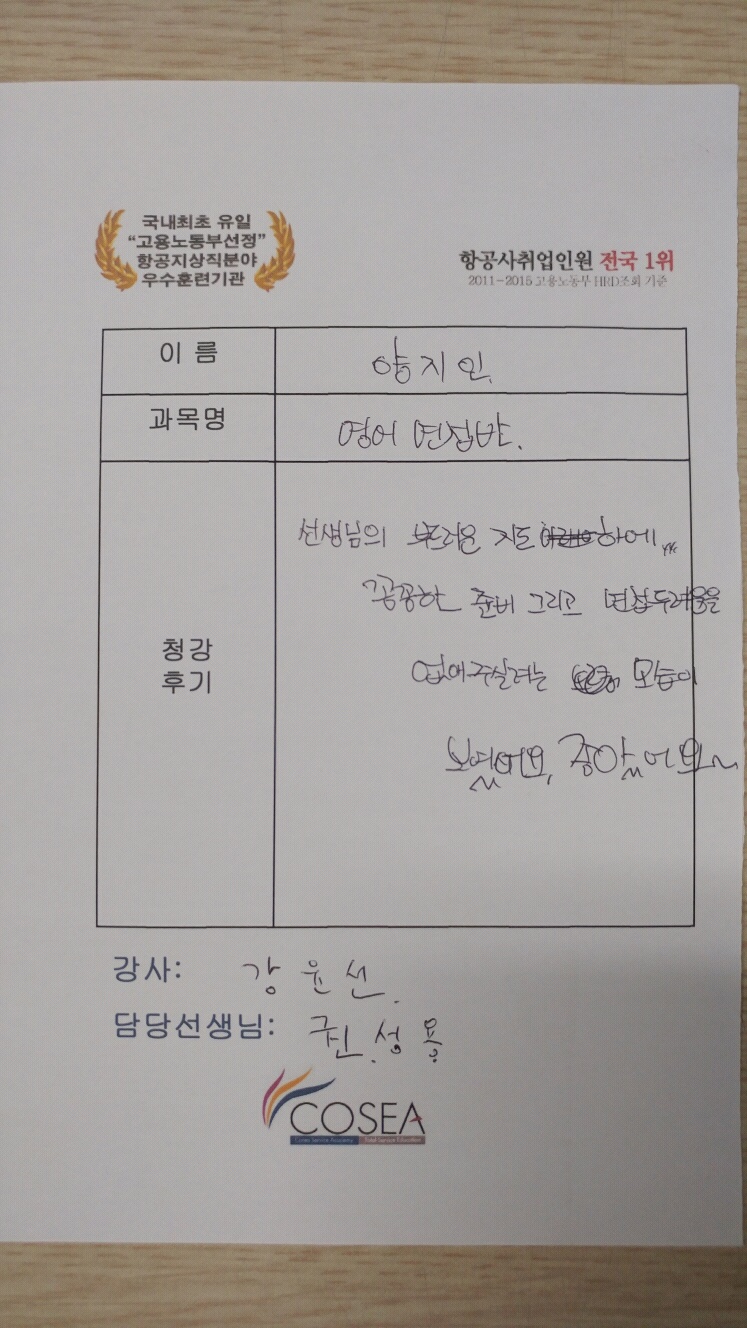 국내최초 유일
“고용노동부선정”
항공지상직분야
우수훈련기관
항공사취업인원 전국 1위
2011-2015 고용노동부 HRD조회 기준
이 름
양지인.
과목명
영어 면접반.
청강
후기
선생님의 부드러운 지도 하에,,,
꼼꼼한 준비 그리고 면접두려움을
없애주실려는 모습이
보였어요, 좋았어요~
강사: 강윤선.
담당선생님: 권성용
COSEA
Cosea Service Academy Total Service Education